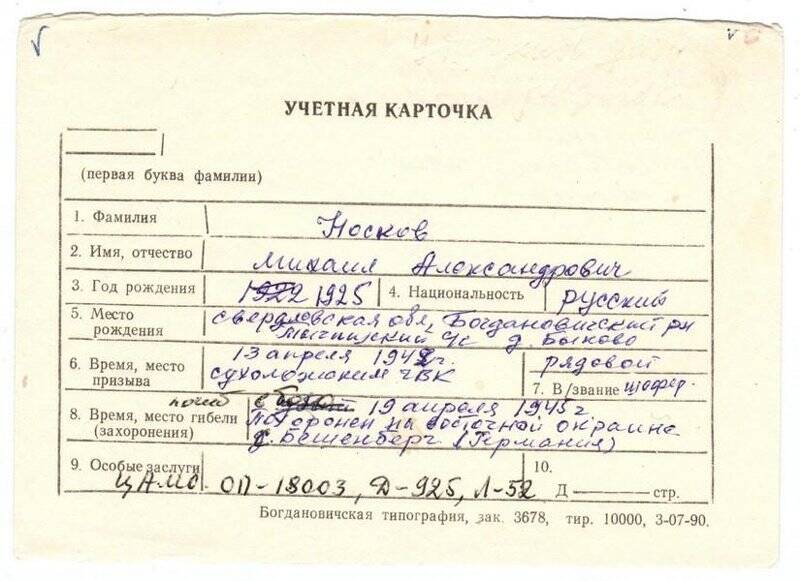 УЧЕТНАЯ КАРТОЧКА
(первая буква фамилии)
1. Фамилия Носков
2. Имя, отчество Михаил Александрович
3. Год рождения 1922 1925 4. Национальность русский
5. Место рождения свердловская обл, Богдановичский рн
д. Быково
6. Время, место призыва 13 апреля 1942 г.
сухоложским ГВК
рядовой
7. В/звание
8. Время, место гибели (захоронения) погиб в бою 19 апреля 1945 г
Похоронен на восточной окраине
(Германия)
9. Особые заслуги
ЦАМО ОП-18003, Д-925, Л-52
10.
Д стр.
Богдановичская типография, зак. 3678, тир. 10000, 3-07-90.